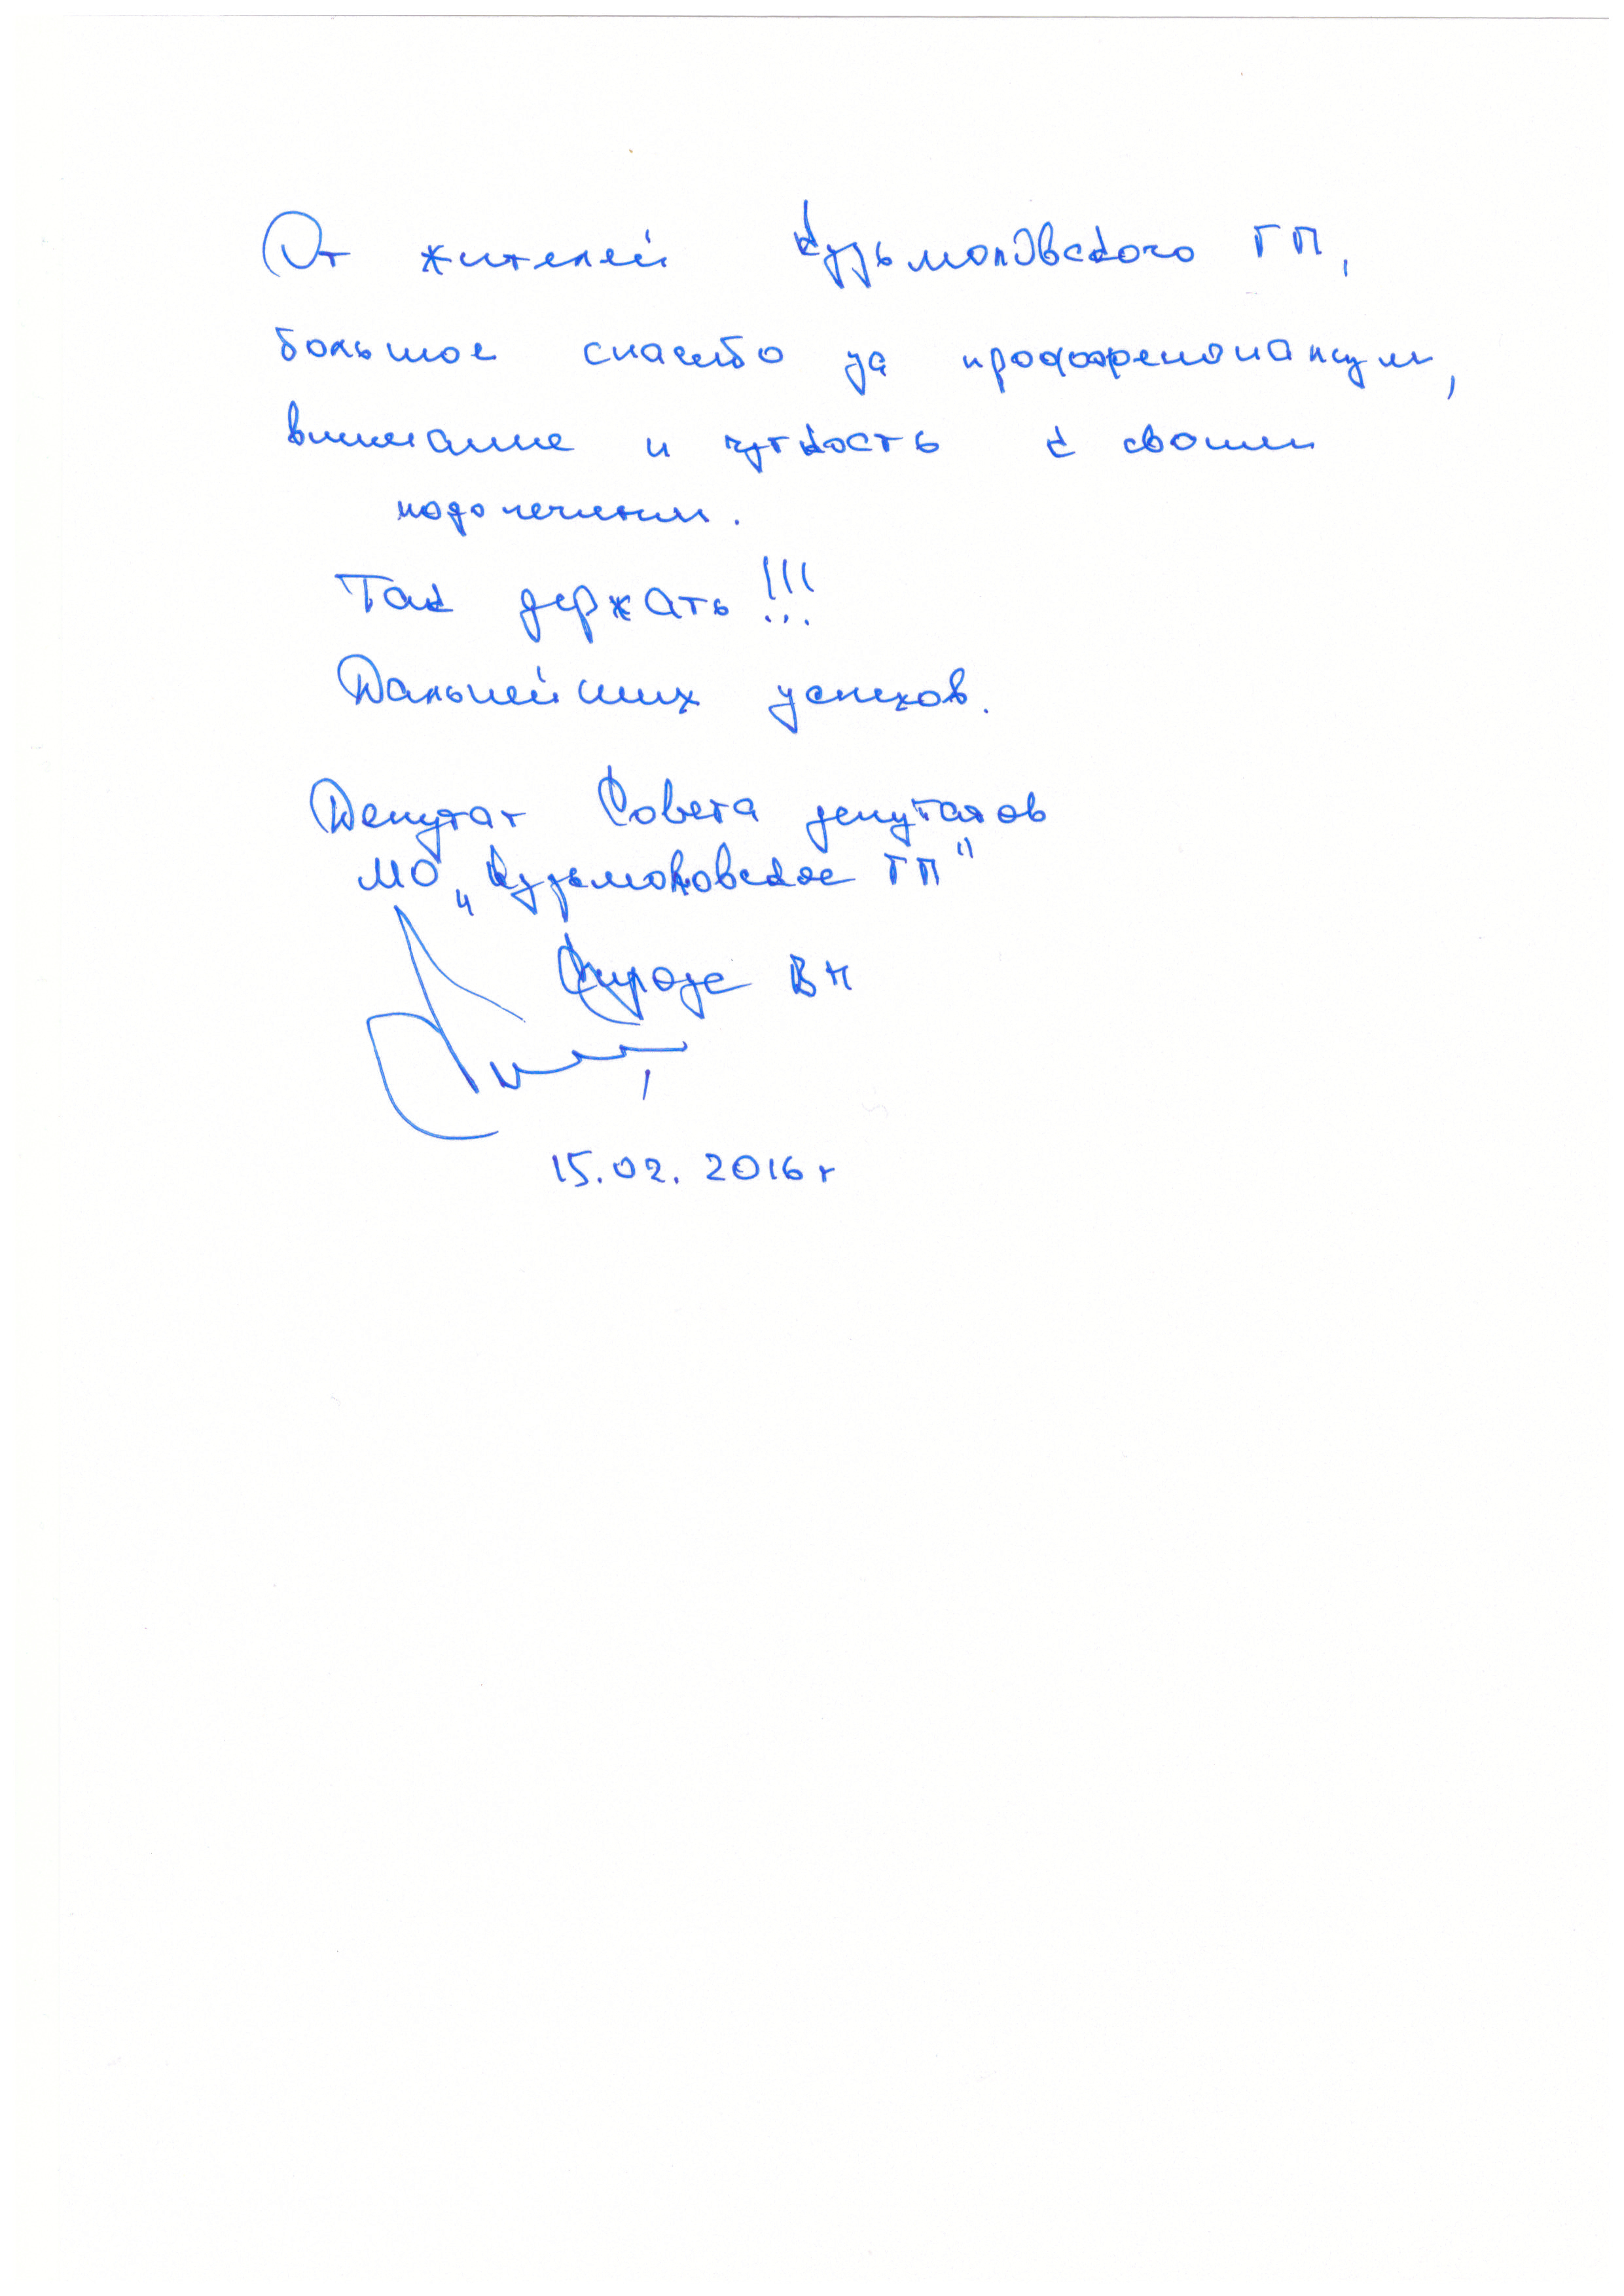 От жителей Кузьмоловского ГП,
большое спасибо за профессионализм,
внимание и чуткость к своим
подопечным.
Так держать!!!
Дальнейших успехов.
Депутат Совета депутатов
МО „Кузьмоловское ГП"
ВН
15.02.2016 г